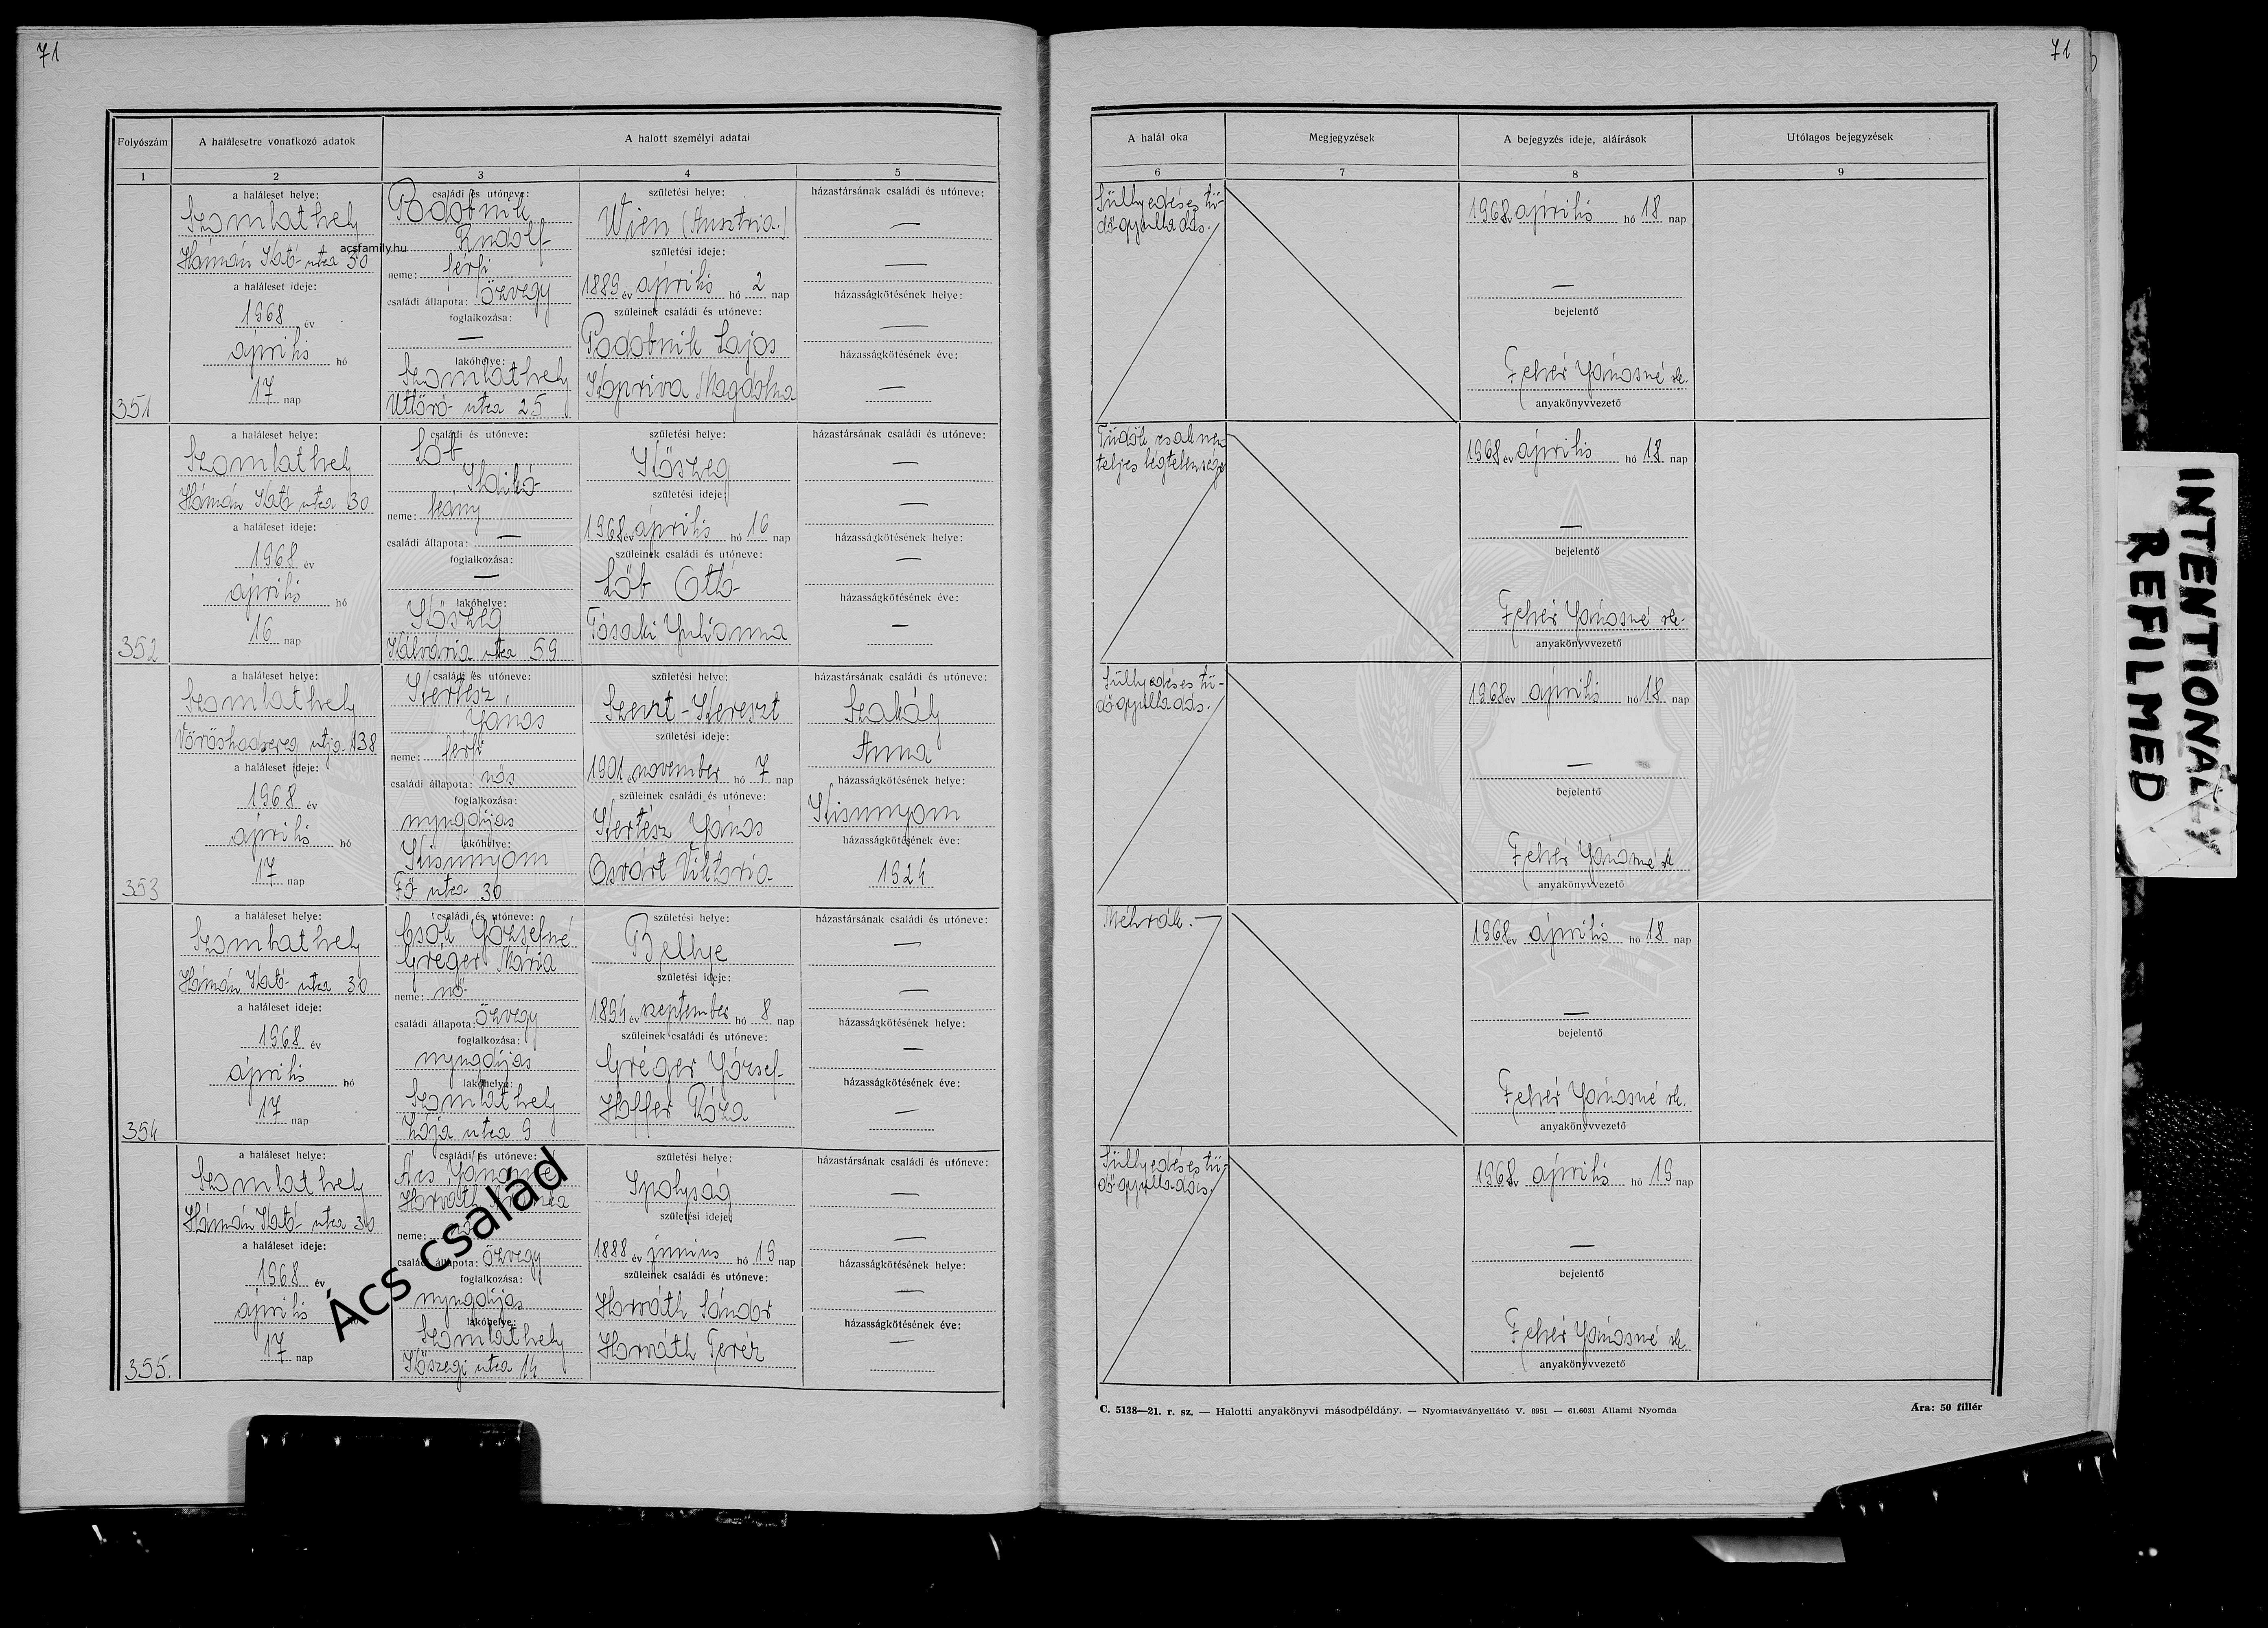 71
Folyószám
A halálesetre vonatkozó adatok
A halott személyi adatai
1
2
3
4
5
a haláleset helye:
Szombathely
Hámán Kató utca 30
a haláleset ideje:
1968 év
április hó
17 nap
351
családi és utóneve:
Podobnik
Rudolf
neme: férfi
családi állapota: özvegy
foglalkozása:
—
lakóhelye:
Szombathely
Úttörő utca 25
születési helye:
Wien (Ausztria.)
születési ideje:
1889 év április hó 2 nap
szüleinek családi és utóneve:
Podobnik Lajos
Kapriva Magdolna
házastársának családi és utóneve:
—
—
házasságkötésének helye:
—
házasságkötésének éve:
—
a haláleset helye:
Szombathely
Hámán Kató utca 30
a haláleset ideje:
1968 év
április hó
16 nap
352
családi és utóneve:
Löb
Ildikó
neme: leány
családi állapota: —
foglalkozása:
—
lakóhelye:
Kőszeg
Kálvária utca 59
születési helye:
Kőszeg
születési ideje:
1968 év április hó 16 nap
szüleinek családi és utóneve:
Löb Ottó
Julianna
házastársának családi és utóneve:
—
—
házasságkötésének helye:
—
házasságkötésének éve:
—
a haláleset helye:
Szombathely
Vöröshadsereg útja 138
a haláleset ideje:
1968 év
április hó
17 nap
353
családi és utóneve:
Kertész
János
neme: férfi
családi állapota: nős
foglalkozása:
nyugdíjas
lakóhelye:
Kisunyom
Fő utca 30
születési helye:
Szent-Kereszt
születési ideje:
1901 november hó 7 nap
szüleinek családi és utóneve:
Kertész János
Osvárt Viktória
házastársának családi és utóneve:
Szakály
Anna
házasságkötésének helye:
Kisunyom
házasságkötésének éve:
1924
a haláleset helye:
Szombathely
Hámán Kató utca 30
a haláleset ideje:
1968 év
április hó
17 nap
354
családi és utóneve:
Csók Józsefné
Gréger Mária
neme: nő
családi állapota: özvegy
foglalkozása:
nyugdíjas
lakóhelye:
Szombathely
Zója utca 9
születési helye:
Bellye
születési ideje:
1894 év szeptember hó 8 nap
szüleinek családi és utóneve:
Gréger József
Hoffer Róza
házastársának családi és utóneve:
—
—
házasságkötésének helye:
—
házasságkötésének éve:
—
a haláleset helye:
Szombathely
Hámán Kató utca 30
a haláleset ideje:
1968 év
április
17 nap
355.
családi és utóneve:
Ács Jánosné
Horváth
neme:
családi állapota: özvegy
foglalkozása:
nyugdíjas
lakóhelye:
Szombathely
Kőszegi utca 14
születési helye:
Ipolyság
születési ideje:
1888 év június hó 19 nap
szüleinek családi és utóneve:
Horváth Sándor
Horváth Teréz
házastársának családi és utóneve:
—
—
házasságkötésének helye:
—
házasságkötésének éve:
—
acsfamily.hu
Ács család
71
A halál oka
Megjegyzések
A bejegyzés ideje, aláírások
Utólagos bejegyzések
6
7
8
9
Süllyedéses tü-
dőgyulladás.
1968 év április hó 18 nap
—
bejelentő
Fehér Jánosné sk.
anyakönyvvezető
Tüdők csaknem
teljes légtelensége
1968 év április hó 18 nap
—
bejelentő
Fehér Jánosné sk.
anyakönyvvezető
Süllyedéses tü-
dőgyulladás.
1968 év április hó 18 nap
—
bejelentő
Fehér Jánosné sk
anyakönyvvezető
Méhrák.—
1968 év április hó 18 nap
—
bejelentő
Fehér Jánosné sk.
anyakönyvvezető
Süllyedéses tü-
dőgyulladás.
1968 v április hó 19 nap
—
bejelentő
Fehér Jánosné sk
anyakönyvvezető
C. 5138—21. r. sz. — Halotti anyakönyvi másodpéldány. — Nyomtatványellátó V. 8951 — 61.6031 Állami Nyomda
Ára: 50 fillér
INTENTIONALLY
REFILMED